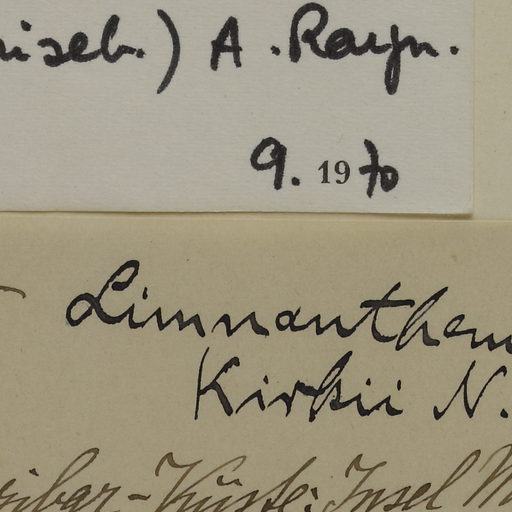 riseb.) A. Rayn.
9. 1970
Limnanthem
Kirkii N.
ribar-Küste: Insel M